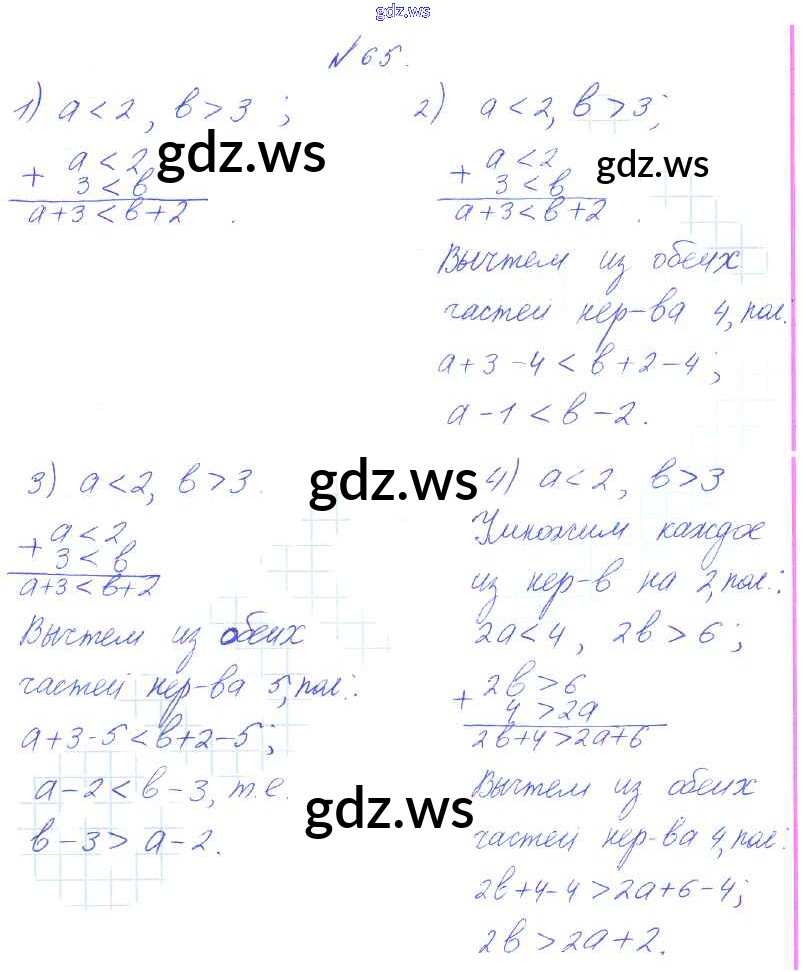 gdz.ws
№ 65.
1) a < 2, b > 3 ;
+ a < 2
3 < b
a+3 < b+2 .
gdz.ws
2) a < 2, b > 3;
+ a < 2
3 < b
a+3 < b+2 .
gdz.ws
Вычтем из обеих
частей нер-ва 4, пол.:
a+3-4 < b+2-4;
a-1 < b-2.
3) a < 2, b > 3.
+ a < 2
3 < b
a+3 < b+2
Вычтем из обеих
частей нер-ва 5, пол.:
a+3-5 < b+2-5;
a-2 < b-3, т.е.
b-3 > a-2.
gdz.ws
4) a < 2, b > 3
Умножим каждое
из нер-в на 2, пол.:
2a < 4, 2b > 6;
+ 2b > 6
4 > 2a
2b+4 > 2a+6
Вычтем из обеих
частей нер-ва 4, пол.:
2b+4-4 > 2a+6-4;
2b > 2a+2.
gdz.ws